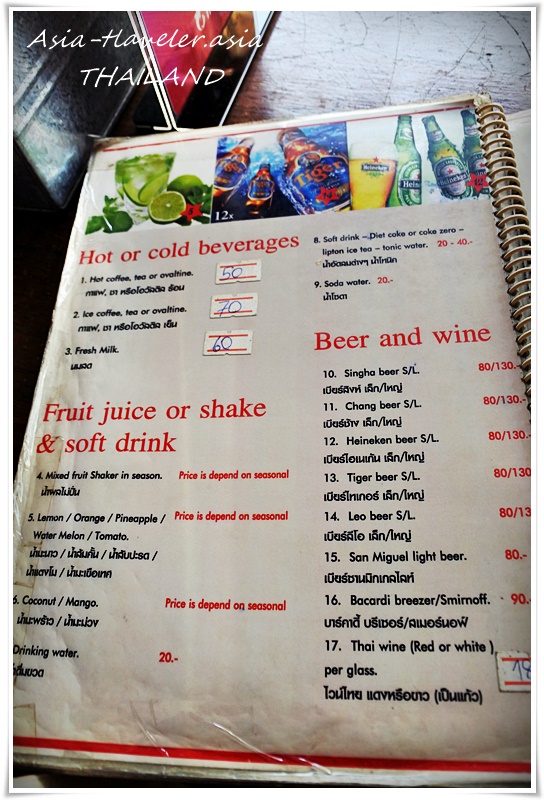 Asia-Traveler.asia
THAILAND
12x
Tiger
Heineken
Heineken
Hot or cold beverages
1. Hot coffee, tea or ovaltine. 50
กาแฟ, ชา หรือโอวัลติล ร้อน
2. Ice coffee, tea or ovaltine. 70
กาแฟ, ชา หรือโอวัลติล เย็น
3. Fresh Milk. 60
นมสด
Fruit juice or shake
& soft drink
4. Mixed fruit Shaker in season. Price is depend on seasonal
น้ำผลไม้ปั่น
5. Lemon / Orange / Pineapple / Price is depend on seasonal
Water Melon / Tomato.
น้ำมะนาว / น้ำส้มคั้น / น้ำสับปะรด /
น้ำแตงโม / น้ำมะเขือเทศ
6. Coconut / Mango. Price is depend on seasonal
น้ำมะพร้าว / น้ำมะม่วง
Drinking water. 20.-
8. Soft drink – Diet coke or coke zero –
lipton ice tea – tonic water. 20 - 40.-
น้ำอัดลมต่างๆ น้ำโทนิก
9. Soda water. 20.-
น้ำโซดา
Beer and wine
10. Singha beer S/L. 80/130.-
เบียร์สิงห์ เล็ก/ใหญ่
11. Chang beer S/L. 80/130.-
เบียร์ช้าง เล็ก/ใหญ่
12. Heineken beer S/L. 80/130.-
เบียร์ไฮเนเก้น เล็ก/ใหญ่
13. Tiger beer S/L. 80/130
เบียร์ไทเกอร์ เล็ก/ใหญ่
14. Leo beer S/L. 80/13
เบียร์ลีโอ เล็ก/ใหญ่
15. San Miguel light beer. 80.-
เบียร์ซานมิกเกลไลท์
16. Bacardi breezer/Smirnoff. 90.-
บาร์คาดี้ บรีเซอร์/สเมอร์นอฟ
17. Thai wine (Red or white )
per glass. 18
ไวน์ไทย แดงหรือขาว (เป็นแก้ว)